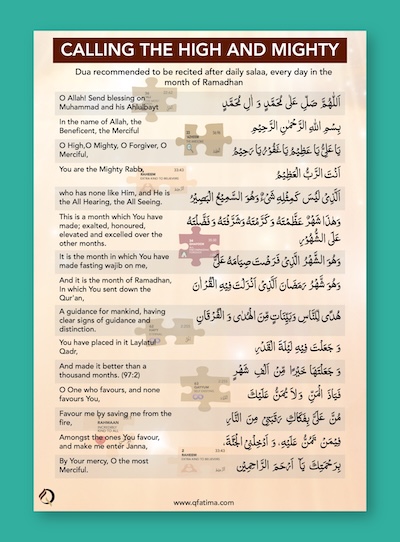 CALLING THE HIGH AND MIGHTY
Dua recommended to be recited after daily salaa, every day in the
month of Ramadhan
O Allah! Send blessing on
Muhammad and his Ahlulbayt
اَللّٰهُمَّ صَلِّ عَلٰى مُحَمَّدٍ وَ اٰلِ مُحَمَّدٍ
In the name of Allah, the
Beneficent, the Merciful
بِسْمِ اللهِ الرَّحْمٰنِ الرَّحِيْمِ
O High,O Mighty, O Forgiver, O
Merciful,
يَا عَلِيُّ يَا عَظِيْمُ يَا غَفُوْرُ يَا رَحِيْمُ
You are the Mighty Rabb,
اَنْتَ الرَّبُّ الْعَظِيْمُ
who has none like Him, and He is
the All Hearing, the All Seeing.
الَّذِيْ لَيْسَ كَمِثْلِهٖ شَيْءٌ وَهُوَ السَّمِيْعُ الْبَصِيْرُ
This is a month which You have
made; exalted, honoured,
elevated and excelled over the
other months.
وَهٰذَا شَهْرٌ عَظَّمْتَهٗ وَ كَرَّمْتَهٗ وَشَرَّفْتَهٗ وَفَضَّلْتَهٗ
عَلَى الشُّهُوْرِ
It is the month in which You have
made fasting wajib on me,
وَهُوَ الشَّهْرُ الَّذِيْ فَرَضْتَ صِيَامَهٗ عَلَيَّ
And it is the month of Ramadan,
In which You sent down the
Qur'an,
وَهُوَ شَهْرُ رَمَضَانَ الَّذِيْ اَنْزَلْتَ فِيْهِ الْقُرْاٰنَ
A guidance for mankind, having
clear signs of guidance and
distinction.
هُدًى لِلنَّاسِ وَبَيِّنَاتٍ مِنَ الْهُدٰى وَ الْفُرْقَانِ
You have placed in it Laylatul
Qadr,
وَ جَعَلْتَ فِيْهِ لَيْلَةَ الْقَدْرِ
And made it better than a
thousand months. (97:2)
وَ جَعَلْتَهَا خَيْرًا مِنْ اَلْفِ شَهْرٍ
O One who favours, and none
favours You,
فَيَا ذَا الْمَنِّ وَلَا يُمَنُّ عَلَيْكَ
Favour me by saving me from the
fire,
مُنَّ عَلَيَّ بِفَكَاكِ رَقَبَتِيْ مِنَ النَّارِ
Amongst the ones You favour,
and make me enter Janna,
فِيْمَنْ تَمُنُّ عَلَيْهِ وَ اَدْخِلْنِيْ الْجَنَّةَ
By Your mercy, O the most
Merciful.
بِرَحْمَتِكَ يَا اَرْحَمَ الرَّاحِمِيْنَ
www.qfatima.com